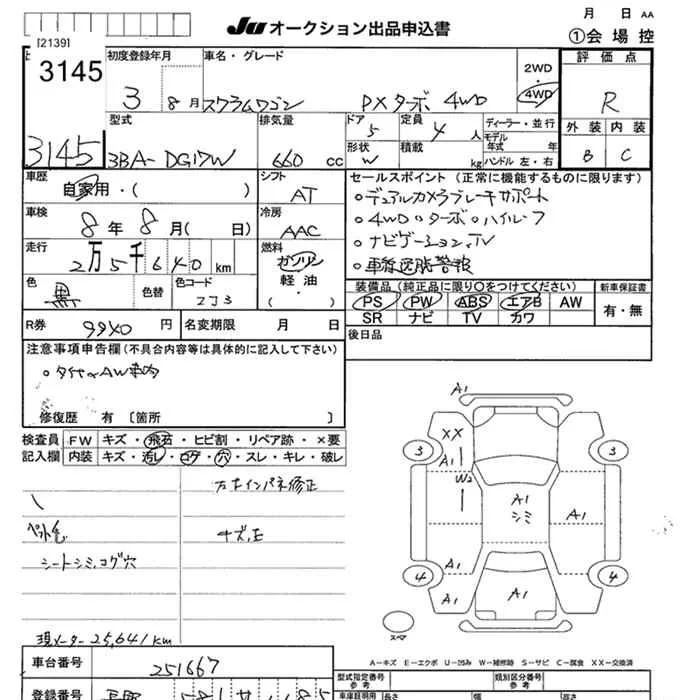 月 日 AA
Ju オークション出品申込書
①会場控
[2139]
3145
初度登録年月
車名・グレード
2WD
・
4WD
評価点
3 8月 スクラムワゴン PXターボ 4WD
R
型式
排気量
ドア 5
定員 4 人
ディーラー・並行
モデル年式 年
外装 内装
3145
3BA-DG17W
660 cc
形状 W
積載 kg
ハンドル 左・右
B C
車歴
自家用・( )
シフト
AT
セールスポイント (正常に機能するものに限ります)
○デュアルカメラブレーキサポート
車検
8年 8月( 日)
冷房
AAC
○4WD ○ターボ ○ハイルーフ
走行
2万5千640km
燃料
ガソリン
軽油
( )
○ナビゲーション,TV
○車線逸脱警報
色
黒
色替
色コード
ZJ3
装備品 (純正品に限り○をつけてください)
新車保証書
PS PW ABS エアB AW
有・無
SR ナビ TV カワ
R券 9940 円
名変期限 月 日
後日品
注意事項申告欄 (不具合内容等は具体的に記入して下さい)
修復歴 有 〔箇所 〕
検査員
記入欄
FW キズ・飛石・ヒビ割・リペア跡・×要
内装 キズ・汚レ・コゲ・穴・スレ・キレ・破レ
インパネ修正
キズ,E
シートシミ,コゲ穴
現メーター25,641km
A1
XX
A1
W2
3
3
A1
シミ
A1
A1
4
4
A1
A1
スペア
A-キズ E-エクボ U-凹み W-補修跡 S-サビ C-腐食 XX-交換済
車台番号
251667
型式指定番号
参考
類別区分番号
参考
登録番号
車庫証明用
長さ
幅
高さ